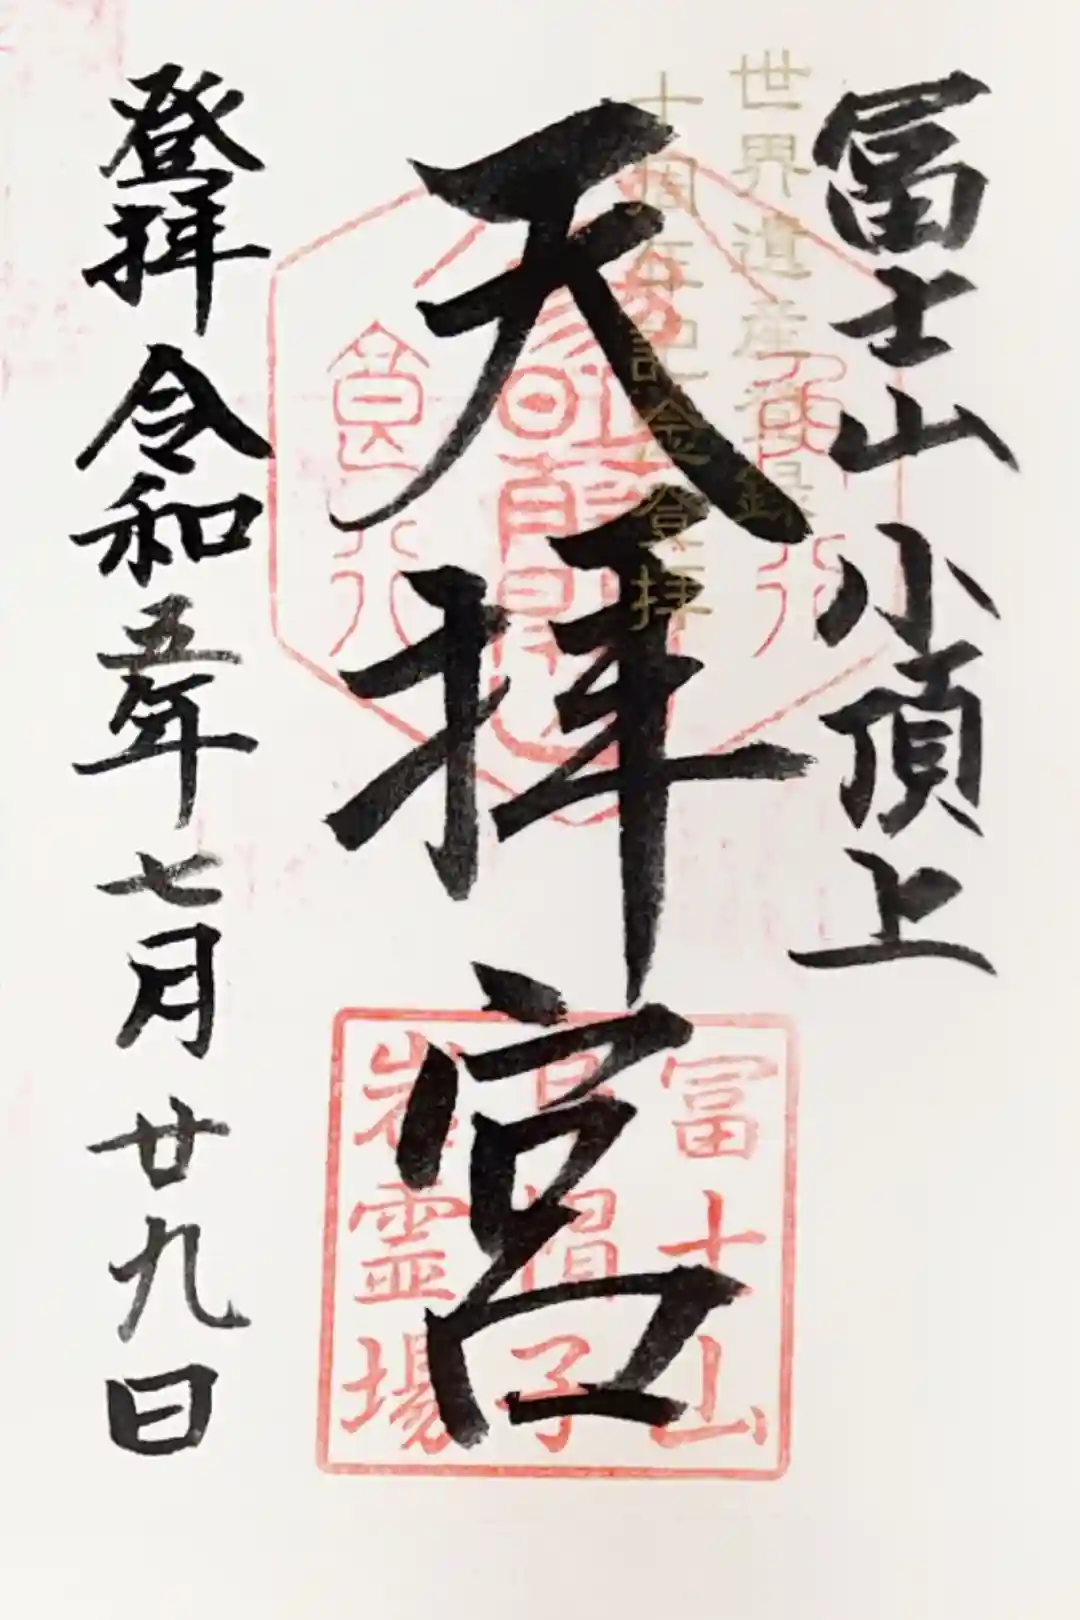 冨士山小頂上
世界遺産登録
十周年記念登拝
天拝宮
冨士山
烏帽子
岩霊場
登拝令和五年七月廿九日